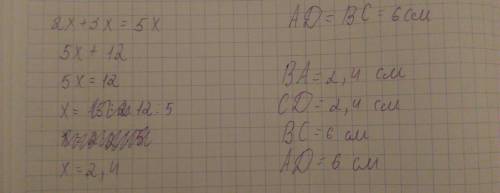 2x+3x=5x
5x+12
5x=12
x= 12:5
x=2,4
AD=BC=6см
BA=2,4 см
CD=2,4 см
BC=6 см
AD=6 см